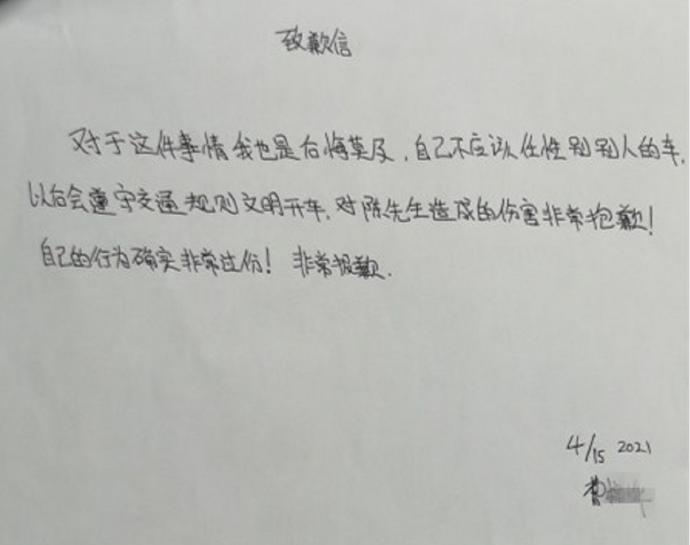 致歉信
对于这件事情我也是后悔莫及，自己不应该任性别别人的车，
以后会遵守交通规则文明开车，对陈先生造成的伤害非常抱歉！
自己的行为确实非常过份！非常报歉.
4/15 2021
曹